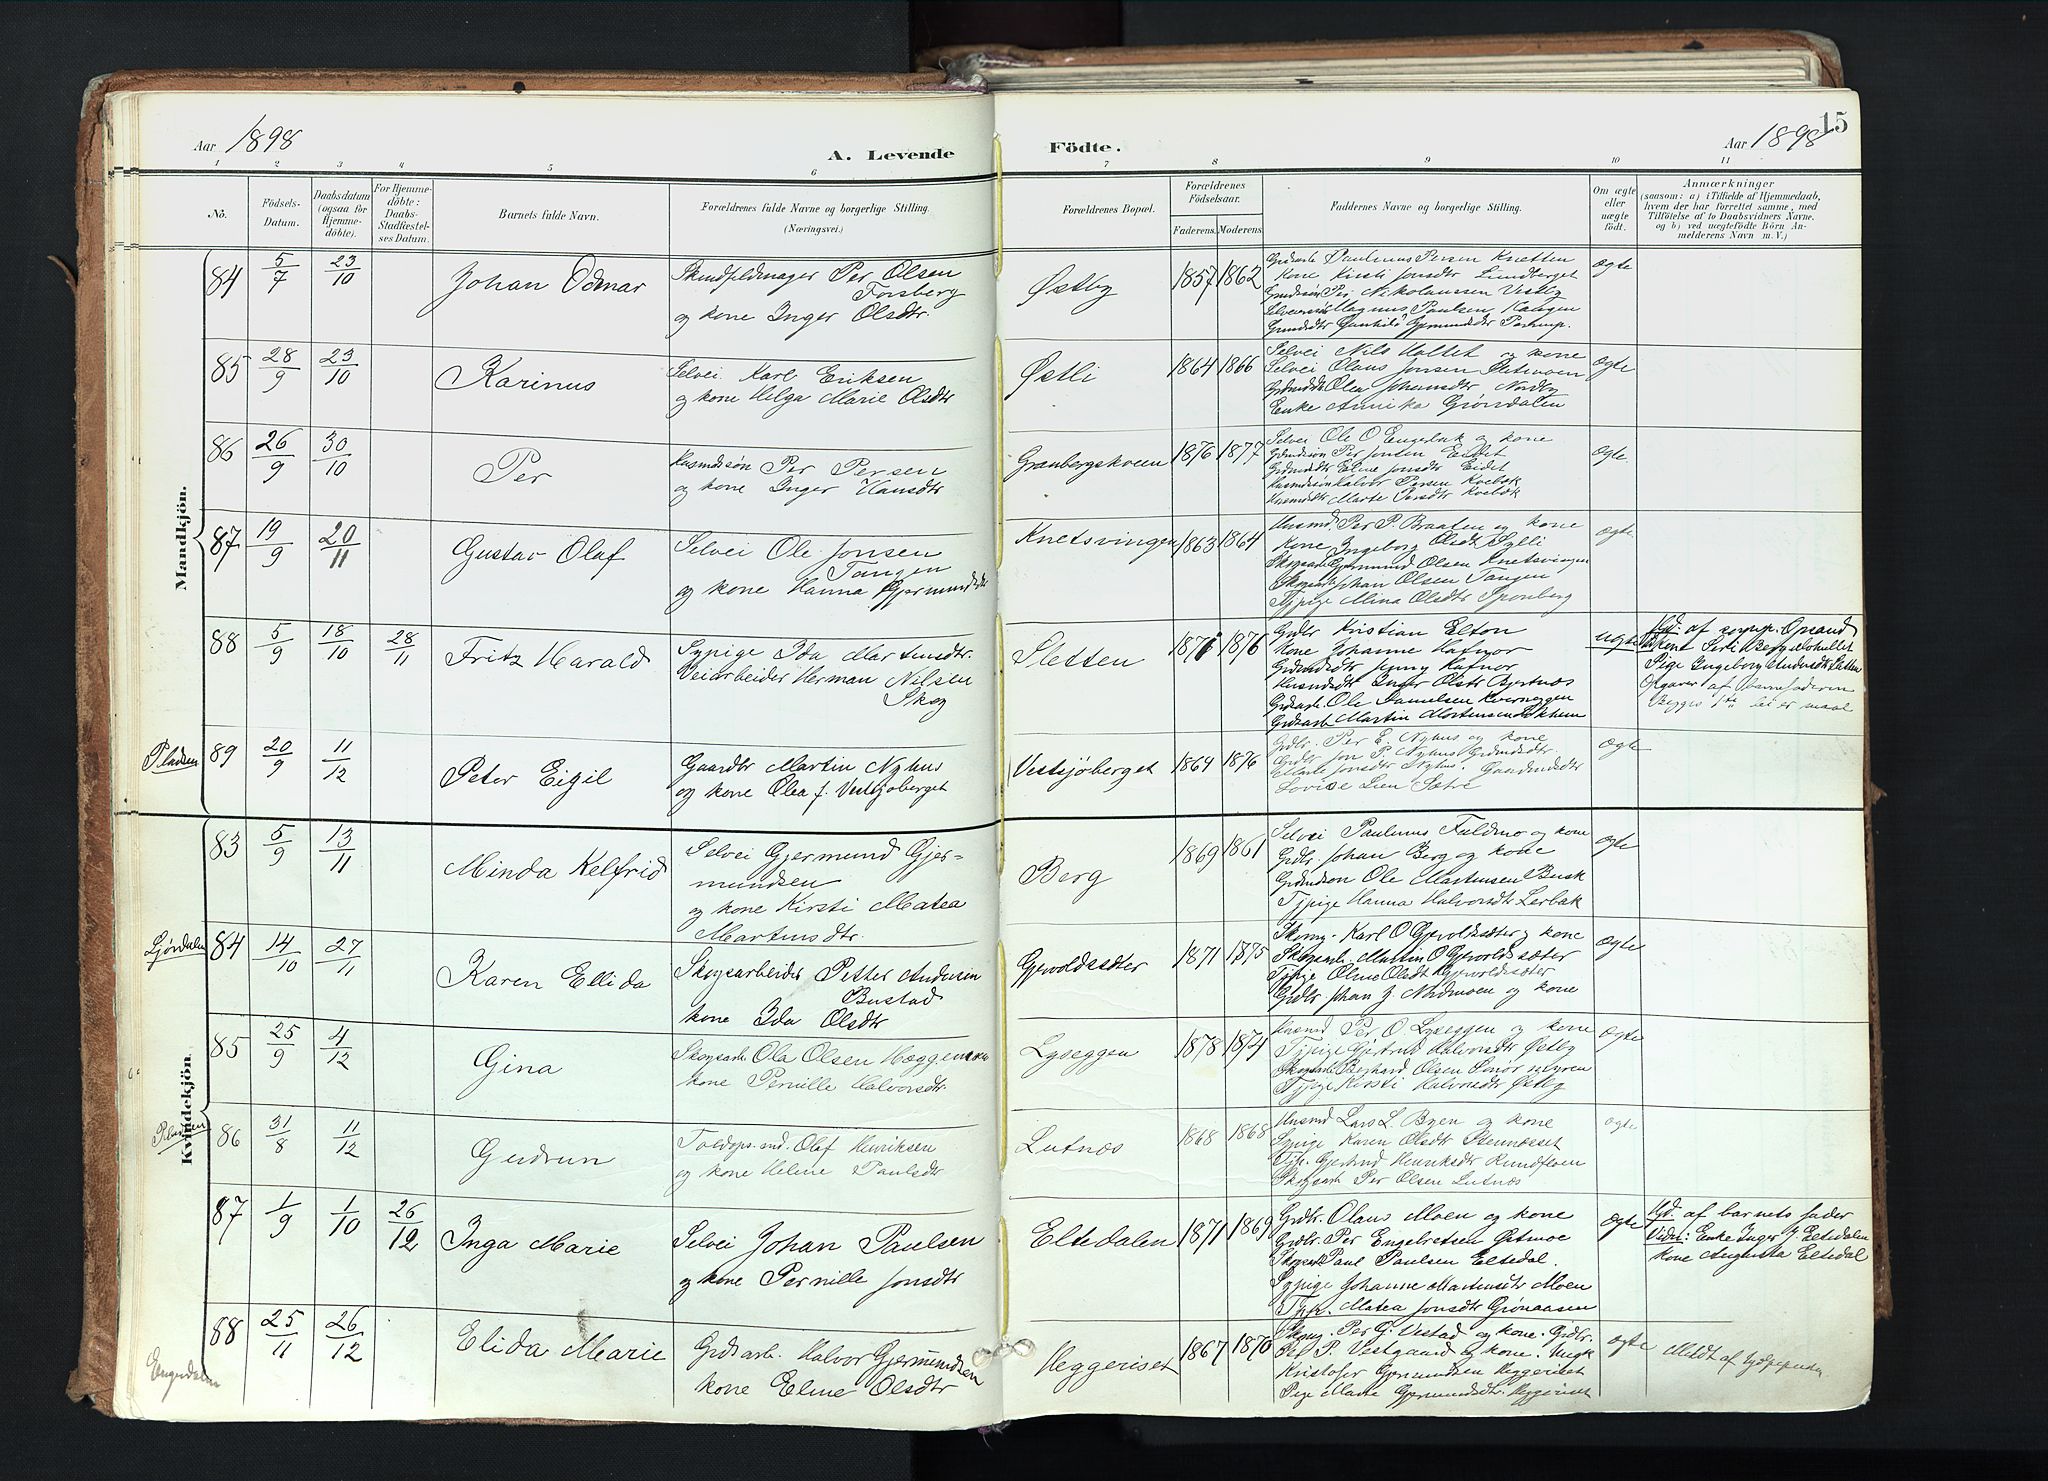 15
Aar 1898
A. Levende
Födte.
Aar 1898
1 2 3 4 5 6 7 8 9 10 11
No.
Födsels-Datum.
Daabsdatum (ogsaa for Hjemmedöbte).
For Hjemmedöbte: Daabs-Stadfæstelses Datum.
Barnets fulde Navn.
Forældrenes fulde Navne og borgerlige Stilling.
(Næringsvei.)
Forældrenes Bopæl.
Forældrenes Födselsaar.
Faderens. Moderens.
Faddernes Navne og borgerlige Stilling.
Om ægte eller uægte födt.
Anmærkninger
(saasom: a) i Tilfælde af Hjemmedaab, hvem der har forrettet samme, med Tilföielse af to Daabsvidners Navne. og b) ved uægtefödte Börn Anmelderens Navn m. V.)
Mandkjön.
84 5/7 23/10 Johan Odmar
Per Olsen
Forsberg
og kone Inger Olsdtr.
Østby 1857 1862
Kone Kirsti Jonsdtr Lundberget
Per Nikolaussen Vestby
Magnus Paulsen
ægte
85 28/9 23/10 Karinus
Selvei Karl Eriksen
og kone Helga Marie Olsdtr
Østli 1864 1866
Selvei Nils Holtet og kone
Selvei Olaus Jonsen
Olea Johansdtr Nordby
Enke Annika Grøndalen
ægte
86 26/9 30/10 Per
Husmdsøn Per Persen
og kone Inger Hansdtr
Granbergskveen 1876 1877
Selvei Ole O Engebak og kone
Grdmdsøn Per Jonsen Eidet
Grdmdtr Eline Jonsdtr Eidet
Husmdsøn Halvor Persen Kvebæk
Husmdtr Marte Persdtr Kvebæk
ægte.
87 19/9 20/11 Gustav Olaf
Selvei Ole Jonsen
Tangen
og kone Hanna Gjermundsdtr
Knetsvingen 1863 1864
Husmd. Per P. Braaten og kone
Kone Ingeborg Olsdtr Sylli
Skogsarb Gjermund Olsen Knetsvingen
Skogsarb Johan Olsen Tangen
Tjpige Mina Olsdtr Sponberg
ægte
88 5/9 18/10 28/11 Fritz Harald
Sypige Ida Martinsdtr.
Veiarbeider Herman Nilsen
Skog
Sletten 1871 1876
Grdbr Kristian Elton
Kone Johanne Hafnor
Grdmdsdtr Jenny Hafnor
Husmdsdtr Inger Olsdtr Bjertnæs
Grdsarb Ole Danielsen Kvernæggen
Grdsarb Martin Mortensen
uægte
Pige Ingeborg
Opgaver af barnefaderen
Pladsen
89 20/9 11/12 Peter Eigil
Gaardbr Martin Nyhus
og kone Olea f. Vestsjøberget
Vestsjøberget 1864 1876
Grdbr. Per E. Nyhus og kone
Grdbr Jon P. Nyhus. Grdmdsdtr.
Marte Jonsdtr Nyhus. Gaardmdsdtr
Lovise Lien Sætre
ægte
Kvindekjön.
83 5/9 13/11 Minda Kelfrid
Selvei Gjermund Gjer=
mundsen
og kone Kirsti Matea
Martinsdtr.
Berg 1869 1861
Selvei Paulinus Fuldmo og kone
Grdbr. Johan Berg og kone
Grdmdsøn Ole Martinsen Busk
Tjpige Hanna Halvorsdtr Lerbak
ægte
Ljørdalen
84 14/10 27/11 Karen Ellida
Skogsarbeider Petter Andersen
Bustad
kone Ida Olsdtr
Gjevoldssæter 1871 1875
Karl O Gjevoldsæter og kone
Skogsarb. Martin O Gjevoldsæter
Tjpige Oline Olsdtr Gjevoldsæter
Grdbr. Johan J. Nordmoen og kone
ægte
85 25/9 4/12 Gina
Skogsarb Ola Olsen Hæggen
kone Pernille Halvorsdtr.
Lyseggen 1878 1874
Husmd Per O. Lyseggen og kone
Tjpige Gjertrud Halvorsdtr Østby
Skogsarb Berghard Olsen
Tjpige Kirsti Halvorsdtr Østby
ægte
Pladsen
86 31/8 11/12 Gudrun
Toldops.md. Olaf Henriksen
og kone Helene Paulsdtr
Lutnæs 1868 1868
Husmd Lars L. Byen og kone
Sypige Karen Olsdtr Stennæsset
Tjp. Gjertrud Henriksdtr Rundfloen
Skogsarb Per Olsen Lutnæs
ægte
87 1/9 1/10 26/12 Inga Marie
Selvei Johan Paulsen
og kone Pernille Jonsdtr
Eltedalen 1871 1869
Grdbr. Olaus Moen og kone
Grdbr. Per Engebretsen Østmoe
Skogsarb Paul Paulsen Eltedal
Sypige Johanne Martinsdtr Moen
Tjp. Matea Jonsdtr Grønaasen
ægte
Hjd. af barnets fader
Vidner: Enke Inger J. Eltedalen
kone Augusta Eltedal
88 25/11 26/12 Elida Marie
Grdsarb. Halvor Gjermundsen
kone Eline Olsdtr
Heggeriset 1867 1870
Per G. Vestad og kone. Grdbr.
Per P. Vestgaard og kone. Ungk
Kristofer Gjermundsen Heggeriset
Pige Marie Gjermundsdtr. Heggeriset
ægte
Meldt af
Engerdalen